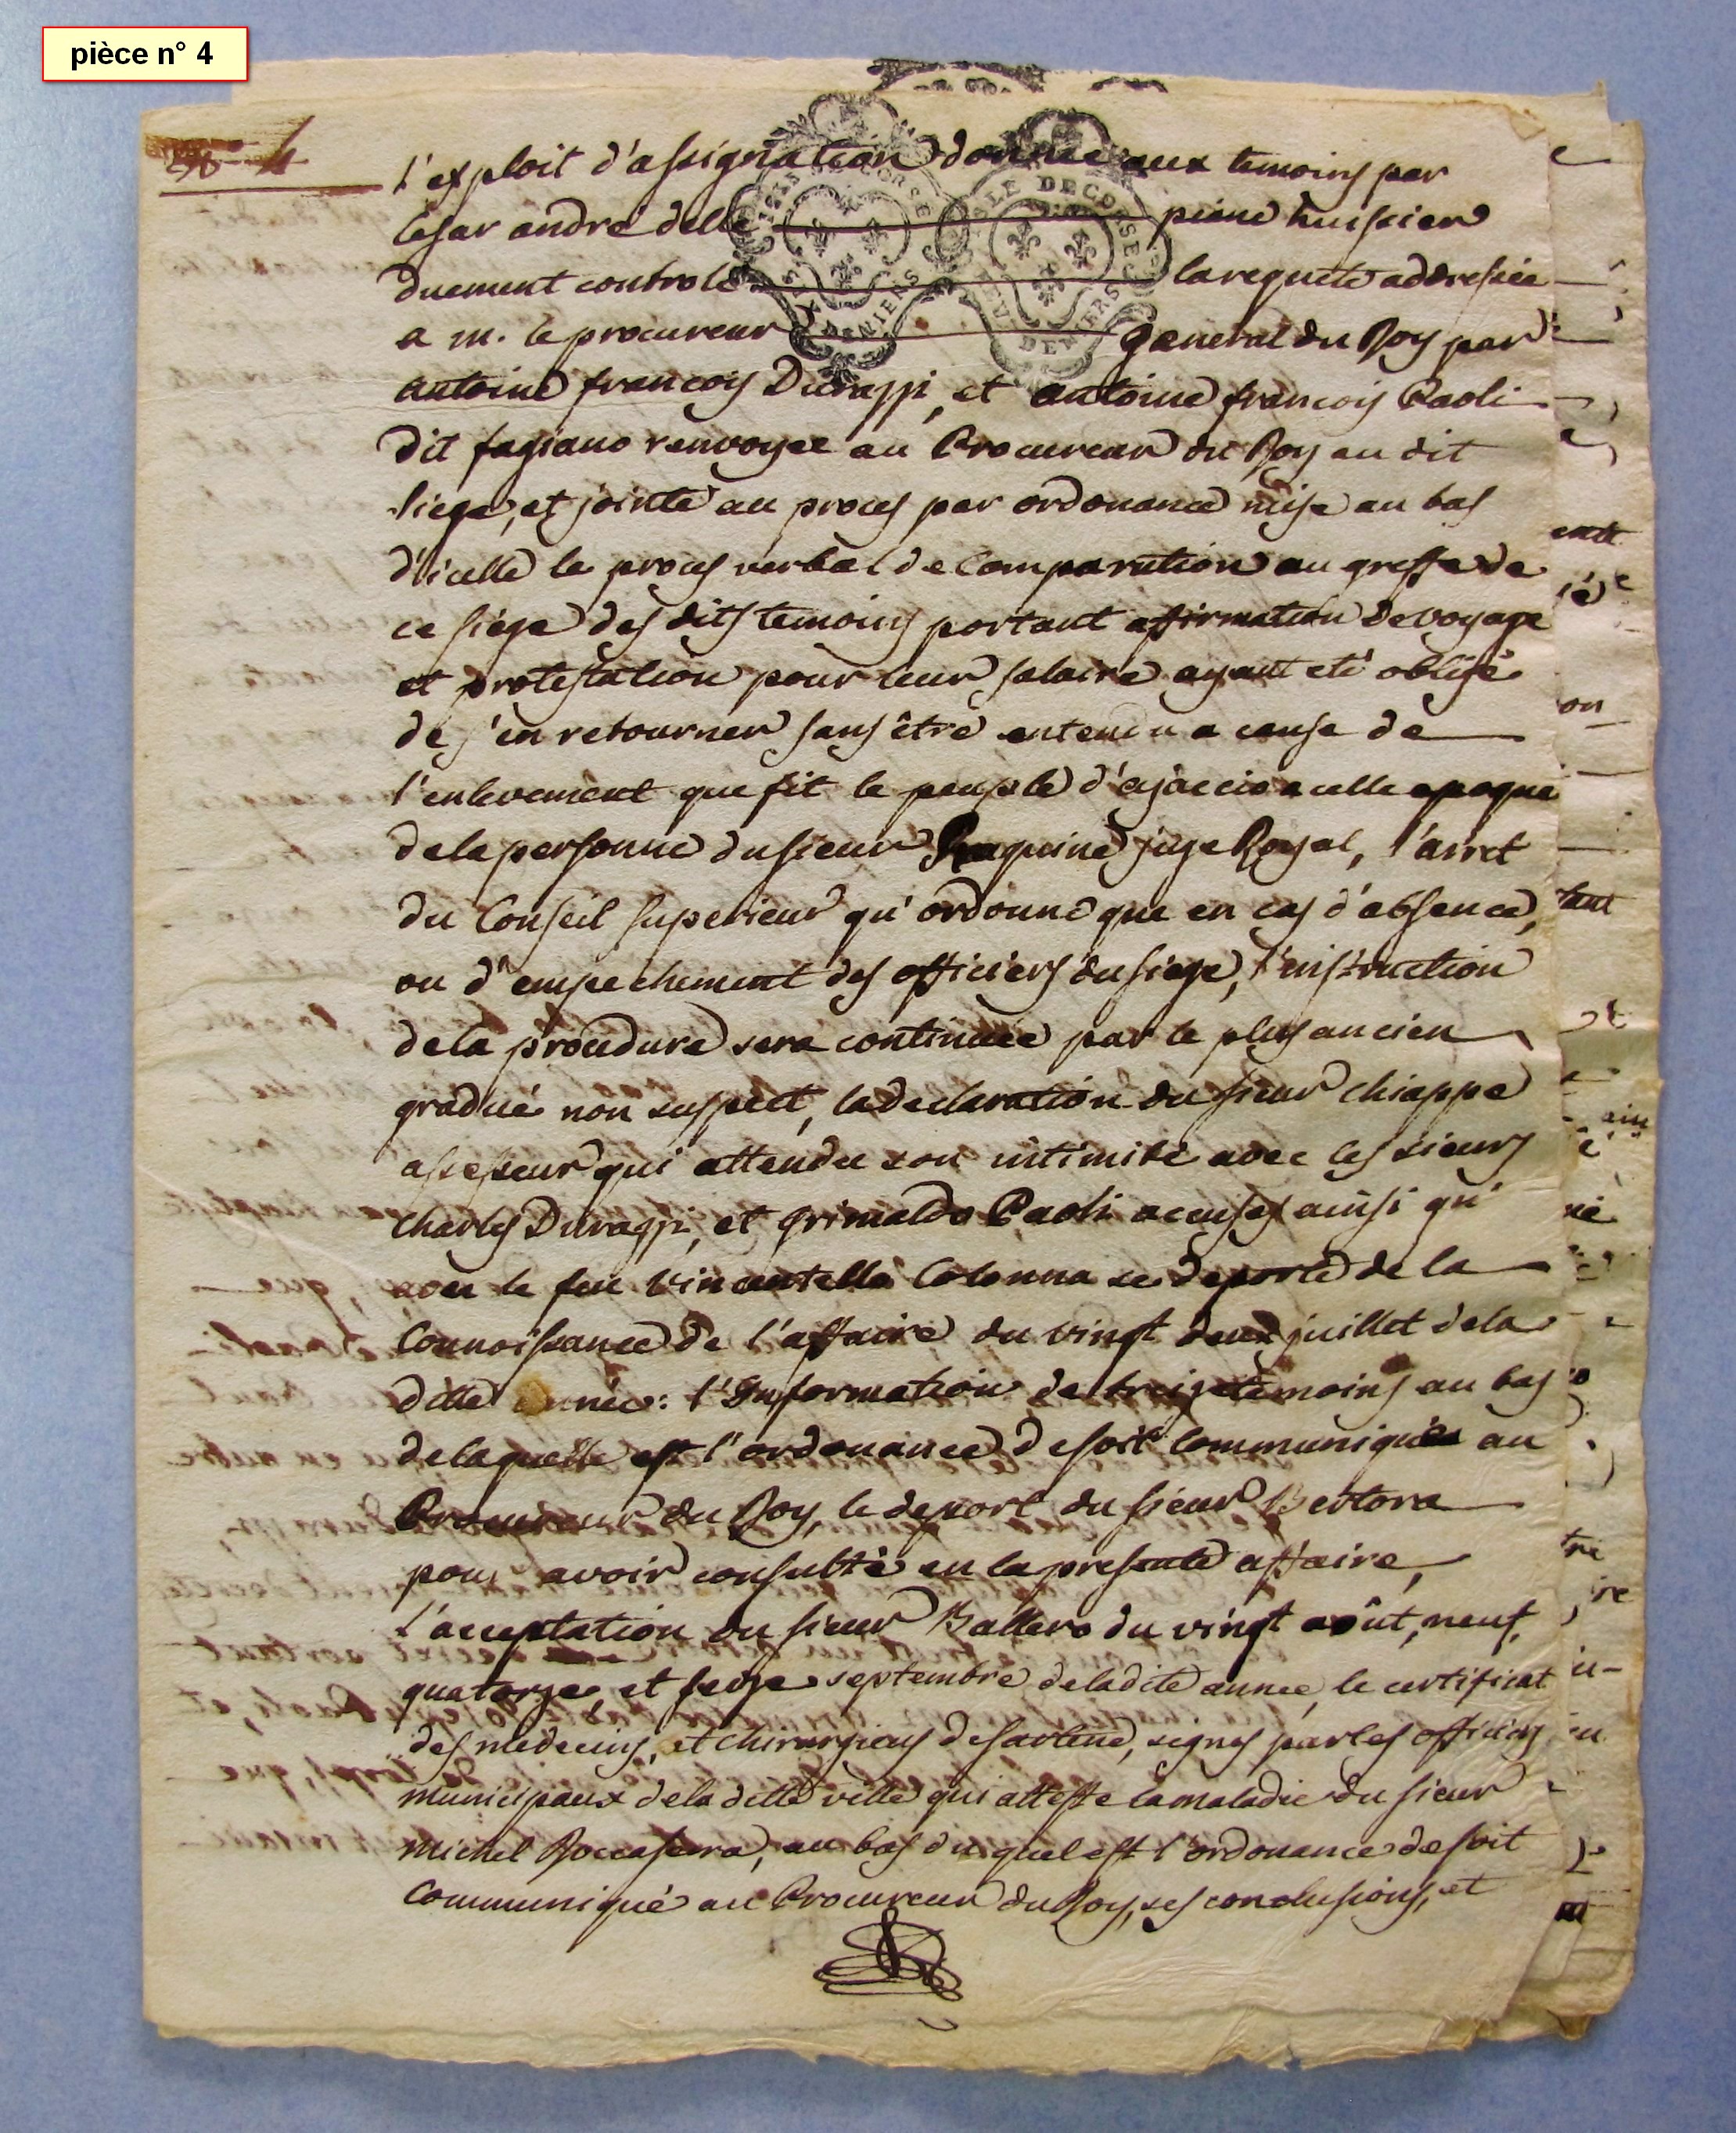 pièce n° 4
4
l'exploit d'assignation donné aux temoins par
Cesar andré delle piane huissier
duement controlé la requete addressée
a m. le procureur general du Roy par
antoine francois Durazzi, et antoine francois Paoli
dit fagiano renvoyee au Procureur du Roy au dit
siege, et jointe au proces par ordonance mise au bas
d'icelle le proces verbal de Comparution au greffe de
ce siége des dits temoins portant affirmation de voyage
et protestation pour leur salaire ayant eté obligé
de s'en retourner sans être entendu a cause de
l'enlevement que fit le peuple d'ajaccio a celle epoque
de la personne du sieur Raquine juge Royal, l'arret
du Conseil superieur qu'ordonne que en cas d'absence,
ou d'empechement des officiers du siege, l'instruction
de la procedure sera continuée par le plus ancien
gradué non suspect, la declaration du sieur Chiappe
assesseur qui attendu son intimité avec les sieurs
Charles Durazzi, et Grimaldo Paoli accusés ainsi qu'
avec le feu Vincentello Colonna se deporte de la
Connoissance de l'affaire du vingt deux juillet de la
ditte année: l'Information de treize temoins au bas
de laquelle est l'ordonance de soit Communiquée au
Procureur du Roy, le deport du sieur Bertora
pour avoir consulté en la presente affaire,
l'acceptation du sieur Ballero du vingt août, neuf,
quatorze, et seize septembre de la dite annee, le certificat
des medecins, et Chirurgiens de Sartene, signes par les officiers
municipaux de la ditte ville qui atteste la maladie du sieur
Michel Roccaserra, au bas du quel est l'ordonance de soit
Communiqué au Procureur du Roy, ses conclusions, et